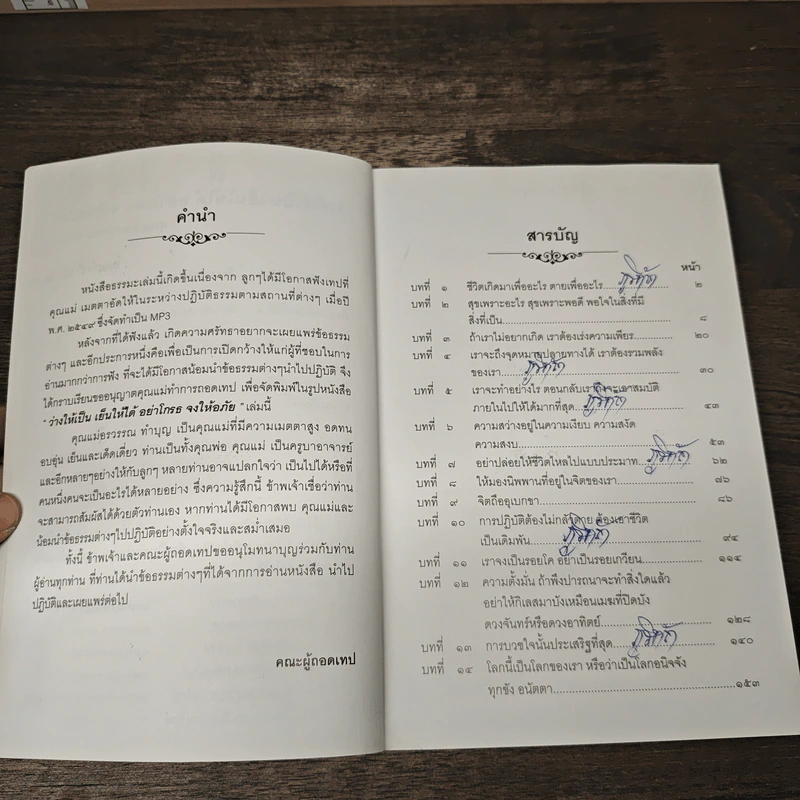 คำนำ
หนังสือธรรมะเล่มนี้เกิดขึ้นเนื่องจาก ลูกๆได้มีโอกาสฟังเทปที่
คุณแม่ เมตตาอัดให้ในระหว่างปฏิบัติธรรมตามสถานที่ต่างๆ เมื่อปี
พ.ศ. ๒๕๔๙ ซึ่งจัดทำเป็น MP3
หลังจากที่ได้ฟังแล้ว เกิดความศรัทธาอยากจะเผยแพร่ข้อธรรม
ต่างๆ และอีกประการหนึ่งคือเพื่อเป็นการเปิดกว้างให้แก่ผู้ที่ชอบในการ
อ่านมากกว่าการฟัง ที่จะได้มีโอกาสน้อมนำข้อธรรมต่างๆนำไปปฏิบัติ จึง
ได้กราบเรียนขออนุญาตคุณแม่ทำการถอดเทป เพื่อจัดพิมพ์ในรูปหนังสือ
" ว่างให้เป็น เย็นให้ได้ อย่าโกรธ จงให้อภัย " เล่มนี้
คุณแม่อรวรรณ ทำบุญ เป็นคุณแม่ที่มีความเมตตาสูง อดทน
อบอุ่น เย็นและเด็ดเดี่ยว ท่านเป็นทั้งคุณพ่อ คุณแม่ เป็นครูบาอาจารย์
และอีกหลายๆอย่างให้กับลูกๆ หลายท่านอาจแปลกใจว่า เป็นไปได้หรือที่
คนหนึ่งคนจะเป็นอะไรได้หลายอย่าง ซึ่งความรู้สึกนี้ ข้าพเจ้าเชื่อว่าท่าน
จะสามารถสัมผัสได้ด้วยตัวท่านเอง หากท่านได้มีโอกาสพบ คุณแม่และ
น้อมนำข้อธรรมต่างๆไปปฏิบัติอย่างตั้งใจจริงและสม่ำเสมอ
ทั้งนี้ ข้าพเจ้าและคณะผู้ถอดเทปขออนุโมทนาบุญร่วมกับท่าน
ผู้อ่านทุกท่าน ที่ท่านได้นำข้อธรรมต่างๆที่ได้จากการอ่านหนังสือ นำไป
ปฏิบัติและเผยแพร่ต่อไป
คณะผู้ถอดเทป
สารบัญ
หน้า
บทที่ ๑ ชีวิตเกิดมาเพื่ออะไร ตายเพื่ออะไร...................๒
บทที่ ๒ สุขเพราะอะไร สุขเพราะพอดี พอใจในสิ่งที่มี
สิ่งที่เป็น...................๘
บทที่ ๓ ถ้าเราไม่อยากเกิด เราต้องเร่งความเพียร...................๒๐
บทที่ ๔ เราจะถึงจุดหมายปลายทางได้ เราต้องรวมพลัง
ของเรา...................๓๐
บทที่ ๕ เราจะทำอย่างไร ตอนกลับเราถึงจะเอาสมบัติ
ภายในไปให้ได้มากที่สุด...................๔๓
บทที่ ๖ ความสว่างอยู่ในความเงียบ ความสงัด
ความสงบ...................๕๓
บทที่ ๗ อย่าปล่อยให้ชีวิตไหลไปแบบประมาท...................๖๒
บทที่ ๘ ให้มองนิพพานที่อยู่ในจิตของเรา...................๗๖
บทที่ ๙ จิตถืออุเบกขา...................๘๖
บทที่ ๑๐ การปฏิบัติต้องไม่กลัวตาย ต้องเอาชีวิต
เป็นเดิมพัน...................๙๔
บทที่ ๑๑ เราจงเป็นรอยโค อย่าเป็นรอยเกวียน...................๑๑๔
บทที่ ๑๒ ความตั้งมั่น ถ้าพึงปรารถนาจะทำสิ่งใดแล้ว
อย่าให้กิเลสมาบังเหมือนเมฆที่ปิดบัง
ดวงจันทร์หรือดวงอาทิตย์...................๑๒๘
บทที่ ๑๓ การบวชใจนั้นประเสริฐที่สุด...................๑๔๐
บทที่ ๑๔ โลกนี้เป็นโลกของเรา หรือว่าเป็นโลกอนิจจัง
ทุกขัง อนัตตา...................๑๕๓